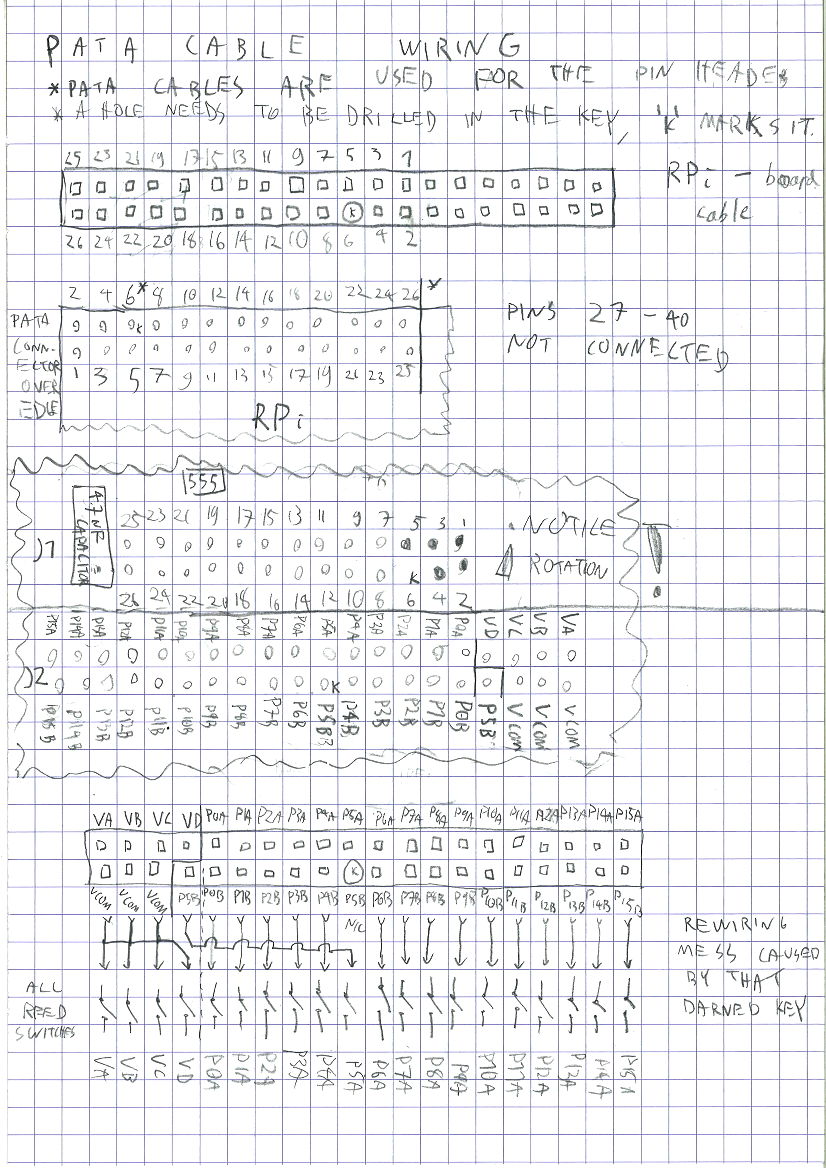 PATA CABLE WIRING
* PATA CABLES ARE USED FOR THE PIN HEADER
* A HOLE NEEDS TO BE DRILLED IN THE KEY, "K" MARKS IT.
25 23 21 19 17 15 13 11 9 7 5 3 1
RPi - board
cable
K
26 24 22 20 18 16 14 12 10 8 6 4 2
2 4 6* 8 10 12 14 16 18 20 22 24 26 *
PATA
CONN-
ECTOR
OVER
EDGE
K
1 3 5 7 9 11 13 15 17 19 21 23 25
RPi
PINS 27 - 40
NOT CONNECTED
555
4.7NF
CAPACITOR
25 23 21 19 17 15 13 11 9 7 5 3 1
J1
K
26 24 22 20 18 16 14 12 10 8 6 4 2
NOTICE
ROTATION
!
P15A P14A P13A P12A P11A P10A P9A P8A P7A P6A P5A P4A P3A P2A P1A P0A VD VC VB VA
J2
K
P15B P14B P13B P12B P11B P10B P9B P8B P7B P6B P5B P4B P3B P2B P1B P0B P5B VCOM VCOM VCOM
VA VB VC VD P0A P1A P2A P3A P4A P5A P6A P7A P8A P9A P10A P11A P12A P13A P14A P15A
K
VCOM VCOM VCOM P5B P0B P1B P2B P3B P4B P5B P6B P7B P8B P9B P10B P11B P12B P13B P14B P15B
N/C
REWIRING
MESS CAUSED
BY THAT
DARNED KEY
ALL
REED
SWITCHES
VA VB VC VD P0A P1A P2A P3A P4A P5A P6A P7A P8A P9A P10A P11A P12A P13A P14A P15A